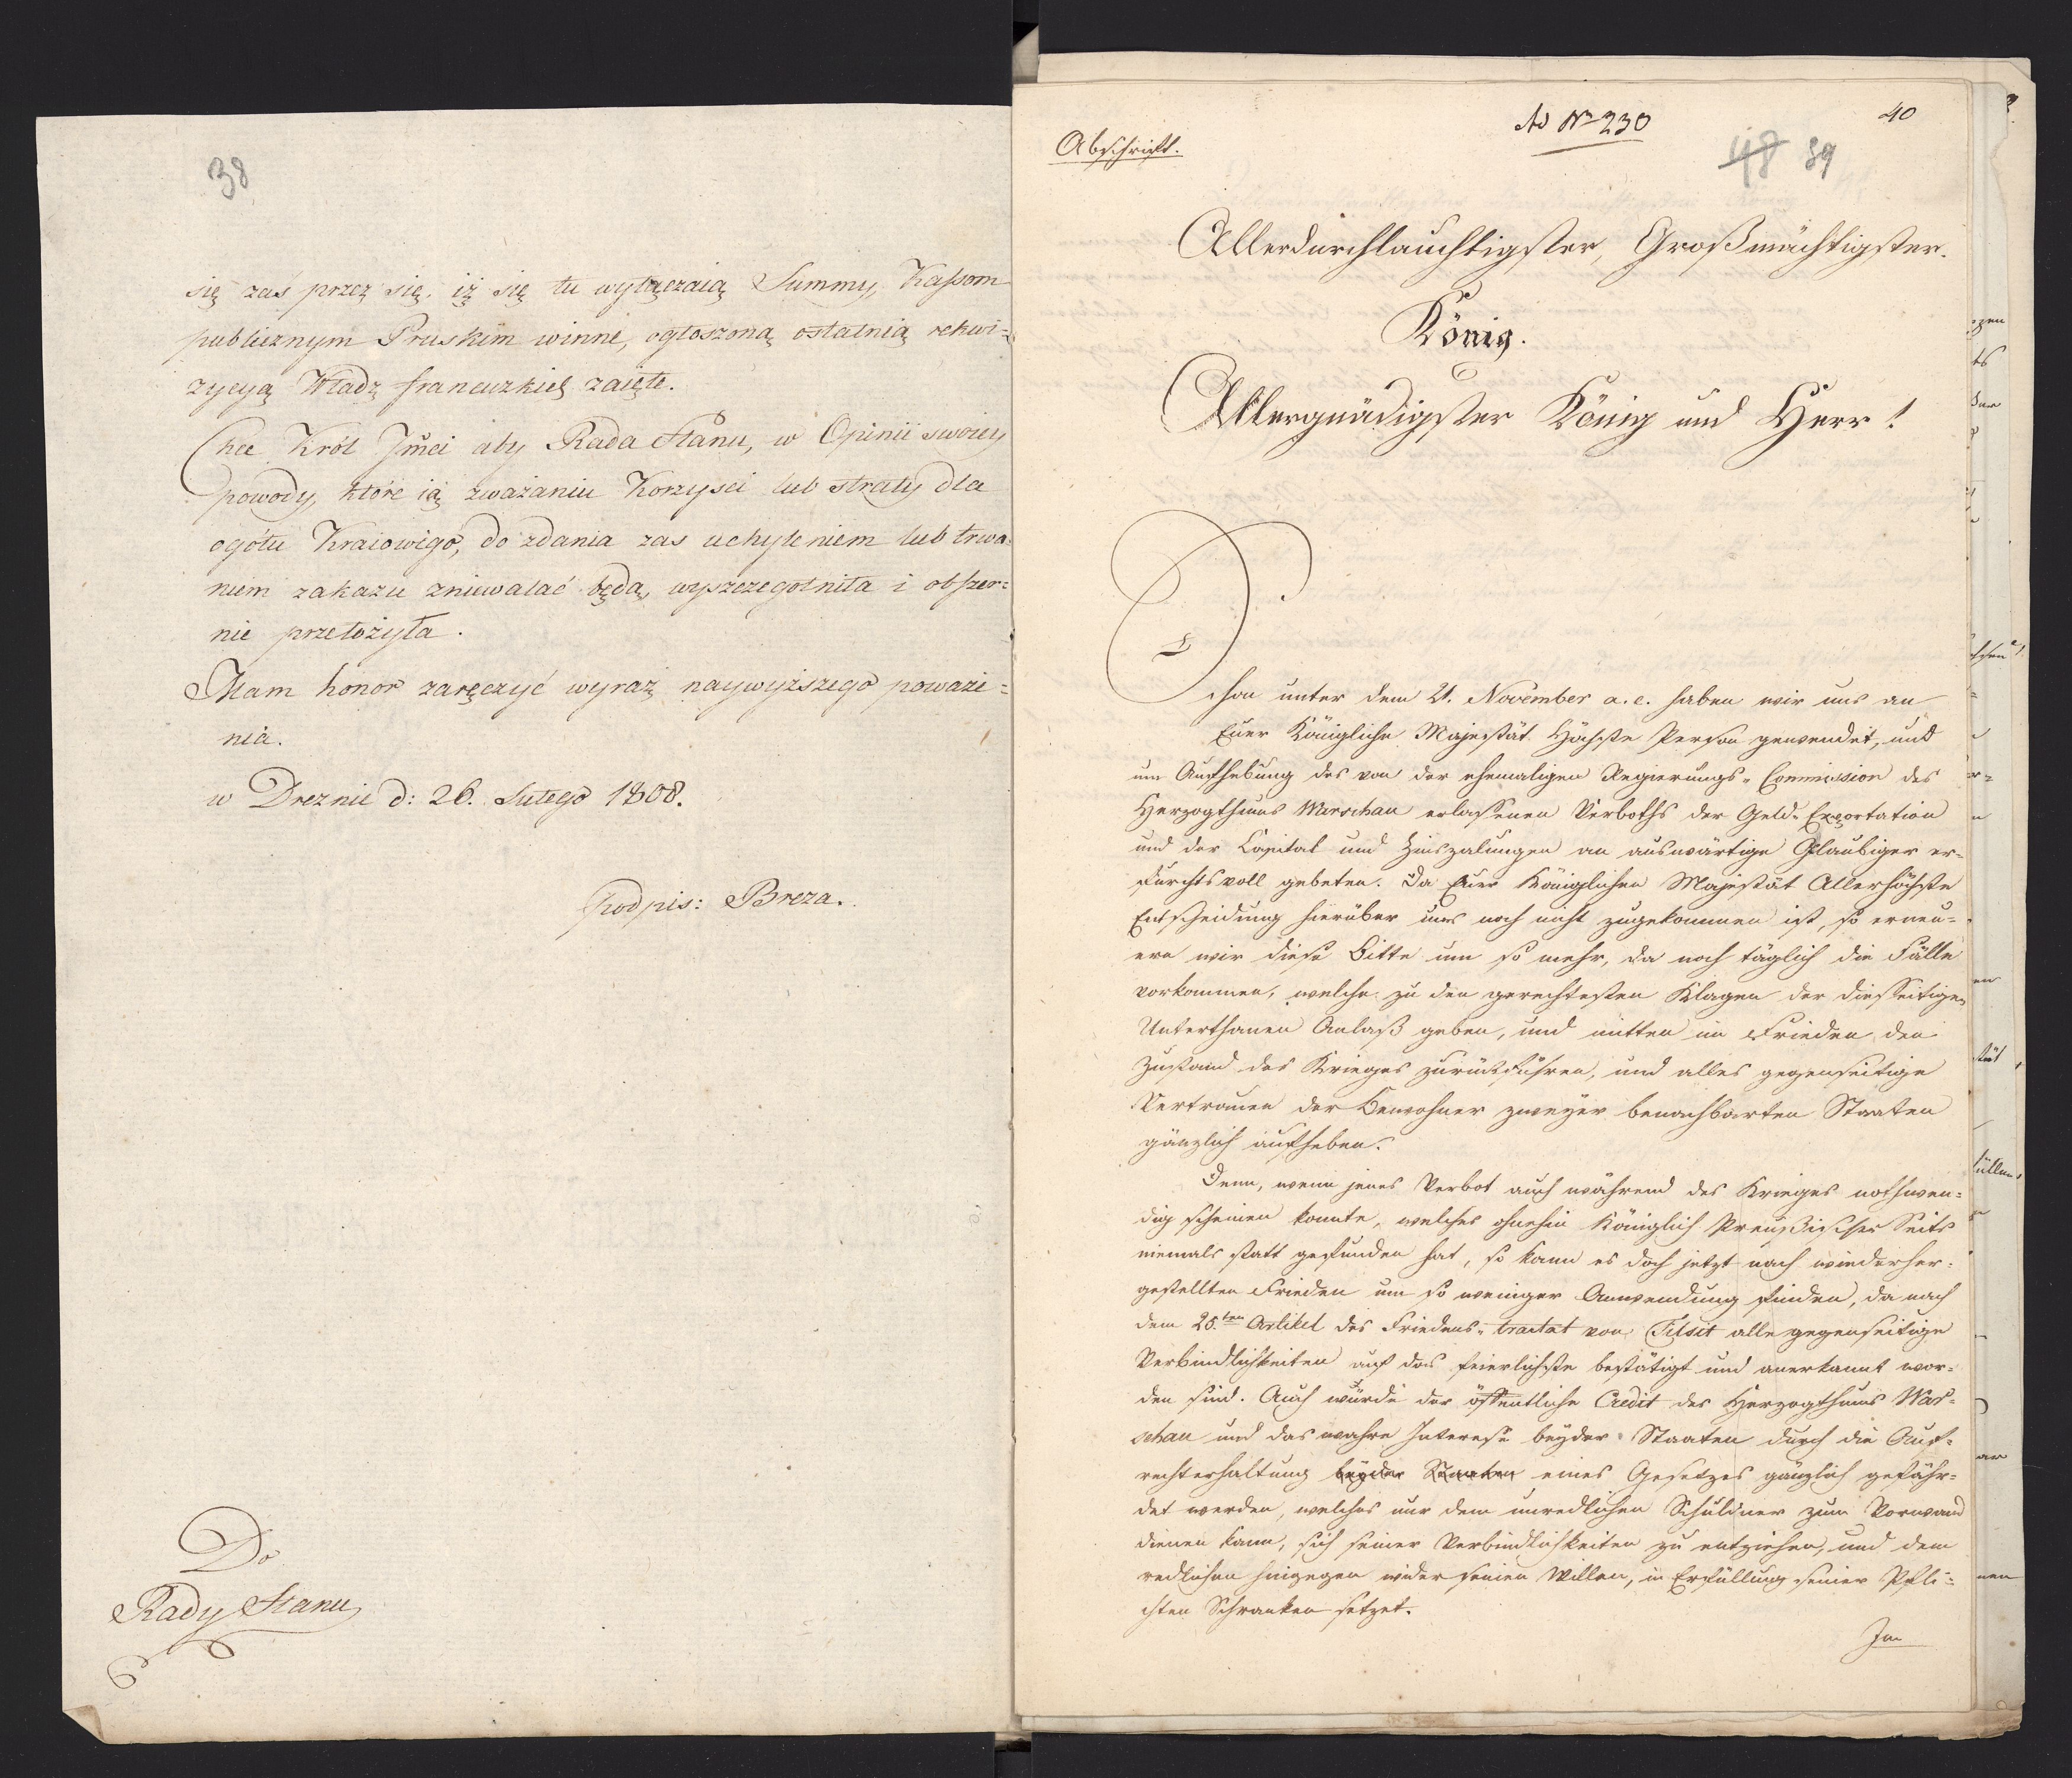 38
się zaś przez się, iż się tu wyłączaią Summy, Kassom
publicznym Pruskim winne, ogłoszoną ostatnią rekwi=
zycyą Władz francuzkich zaięte.
Chce Król Jmci aby Rada Stanu, w Opinii swoiey
powody, które ią zważaniu Korzysci lub straty dla
ogółu Kraiowego, do zdania zas uchyleniem lub trwa=
niem zakazu zniewalać będą, wyszczegolniła i obszer=
nie przełożyła.
Mam honor zaręczyć wyraz naywyższego poważe=
nia.
w Dreznie d: 26. Lutego 1808.
Podpis: Breza.
Do
Rady Stanu
Abschrift.
Ad Nro 230
40
48 39
Allerdurchlauchtigster, Großmächtigster.
König.
Allergnädigster König und Herr!
Schon unter dem 21. November a. c. haben wir uns an
Euer Königliche Majestät Höchste Person gewendet, und
um Aufhebung des von der ehemaligen Regierungs-Commission des
Herzogthums Warschau erlassenen Verboths der Geld-Exportation
und der Capital und Zinszalungen an auswärtige Gläubiger er=
furchtsvoll gebeten. Da Euer Königlichen Majestät Allerhöchste
Entscheidung hierüber uns noch nicht zugekommen ist, so erneu=
ern wir diese Bitte um so mehr, da noch täglich die Fälle
vorkommen, welche zu den gerechtesten Klagen der diesseitigen
Unterthanen Anlaß geben, und mitten im Frieden den
Zustand des Krieges zurückführen, und alles gegenseitige
Vertrauen der Bewohner zweyer benachbarten Staaten
gänzlich aufheben.
Denn, wenn jenes Verbot auch während des Krieges nothwen=
dig scheinen konnte, welches ohnehin Königlich Preußischer Seits
niemals statt gefunden hat, so kann es doch jetzt nach wiederher=
gestellten Frieden um so weniger Anwendung finden, da nach
dem 25.ten Artikel des Friedens-tractat von Tilsit alle gegenseitige
Verbindlichkeiten auf das feierlichste bestätigt und anerkannt wor=
den sind. Auch würde der öffentliche Credit des Herzogthums War=
schau und das wahre Interesse beyder Staaten durch die Auf=
rechterhaltung beyder Staaten eines Gesetzes gänzlich gefähr=
det werden, welches nur dem unredlichen Schuldner zum Vorwand
dienen kann, sich seiner Verbindlichkeiten zu entziehen, und dem
redlichen hingegen wider seinen Willen, in Erfüllung seiner Pfli=
chten Schranken setzet.
Im